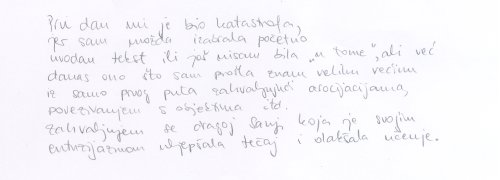 Prvi dan mi je bio katastrofa,
jer sam možda izabrala početno
modan tekst ili još nisam bila „u tome“, ali već
danas ono što sam prošla znam velikim većim
iz samo prvog puta zahvaljujući asocijacijama,
povezivanjem s objektima itd.
Zahvaljujem se dragoj Sanji koja je svojim
entuzijazmom uljepšala tečaj i olakšala učenje.